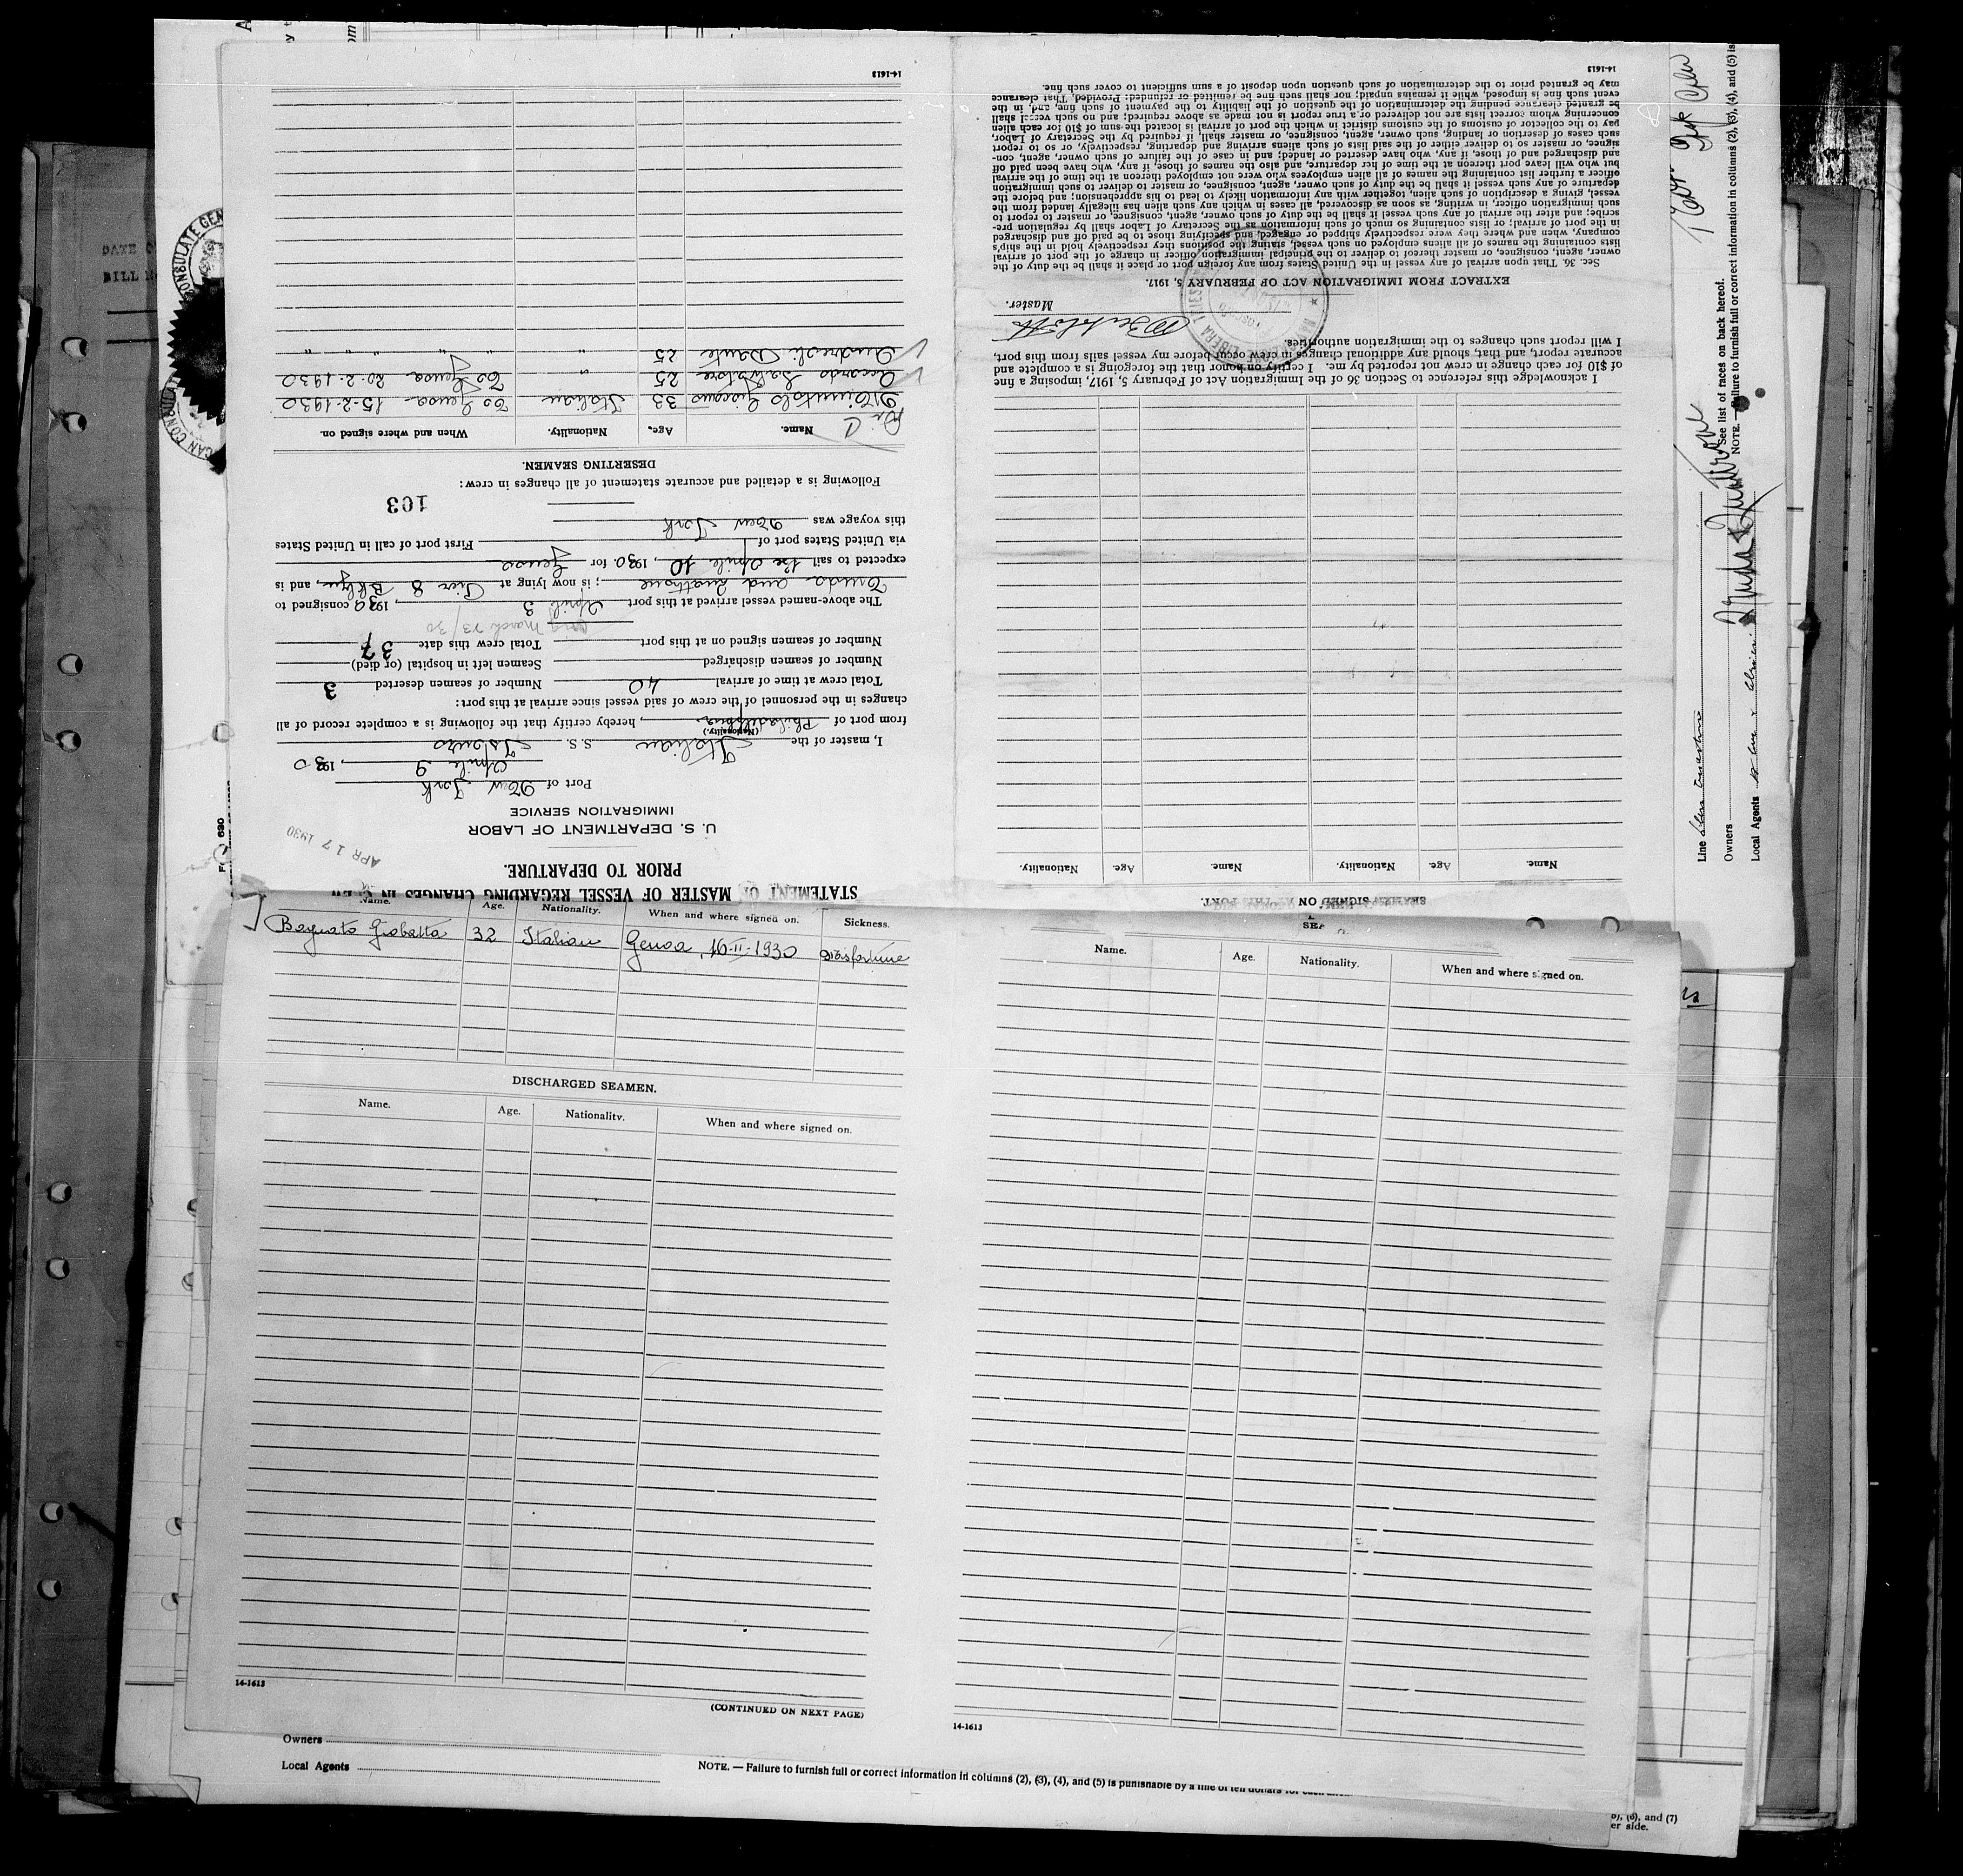 14-1613
STATEMENT OF MASTER OF VESSEL REGARDING CHANGES IN
PRIOR TO DEPARTURE.
U. S. DEPARTMENT OF LABOR
IMMIGRATION SERVICE
APR 17 1930
Port of New York
Aprile 9, 1930
I, master of the Italian S. S. Isonzo
(Nationality.)
from port of Philadelphia, hereby certify that the following is a complete record of all
changes in the personnel of the crew of said vessel since arrival at this port:
Total crew at time of arrival 40 Number of seamen deserted 3
Number of seamen discharged Seamen left in hospital (or died)
Number of seamen signed on at this port Total crew this date 37
March 23/30
The above-named vessel arrived at this port April 3, 1930 consigned to
Truda and Quattrone; is now lying at Pier 8 Bklyn, and is
expected to sail the Aprile 10, 1930 for Genoa
via United States port of First port of call in United States
this voyage was New York
103
Following is a detailed and accurate statement of all changes in crew:
DESERTING SEAMEN.
Name. Age. Nationality. When and where signed on.
33 Italian Genoa 15-2-1930
Accardo Salvatore 25 " Genoa 20-2-1930
Andreoli Dante 25 " " " "
14-1613
SEAMEN SIGNED ON AT THIS PORT.
Name. Age. Nationality. Name. Age. Nationality.
I acknowledge this reference to Section 36 of the Immigration Act of February 5, 1917, imposing a fine
of $10 for each change in crew not reported by me. I certify on honor that the foregoing is a complete and
accurate report, and that, should any additional changes in crew occur before my vessel sails from this port,
I will report such changes to the immigration authorities.
Master.
EXTRACT FROM IMMIGRATION ACT OF FEBRUARY 5, 1917.
Sec. 36. That upon arrival of any vessel in the United States from any foreign port or place it shall be the duty of the
owner, agent, consignee, or master thereof to deliver to the principal immigration officer in charge of the port of arrival
lists containing the names of all aliens employed on such vessel, stating the positions they respectively hold in the ship's
company, when and where they were respectively shipped or engaged, and specifying those to be paid off and discharged
in the port of arrival; or lists containing so much of such information as the Secretary of Labor shall by regulation pre-
scribe; and after the arrival of any such vessel it shall be the duty of such owner, agent, consignee, or master to report to
such immigration officer, in writing, as soon as discovered, all cases in which any such alien has illegally landed from the
vessel, giving a description of such alien, together with any information likely to lead to his apprehension; and before the
departure of any such vessel it shall be the duty of such owner, agent, consignee, or master to deliver to such immigration
officer a further list containing the names of all alien employees who were not employed thereon at the time of the arrival
but who will leave port thereon at the time of her departure, and also the names of those, if any, who have been paid off
and discharged and of those, if any, who have deserted or landed; and in case of the failure of such owner, agent, con-
signee, or master so to deliver either of the said lists of such aliens arriving and departing, respectively, or so to report
such cases of desertion or landing, such owner, agent, consignee, or master shall, if required by the Secretary of Labor,
pay to the collector of customs of the customs district in which the port of arrival is located the sum of $10 for each alien
concerning whom correct lists are not delivered or a true report is not made as above required; and no such vessel shall
be granted clearance pending the determination of the question of the liability to the payment of such fine, and, in the
event such fine is imposed, while it remains unpaid; nor shall such fine be remitted or refunded: Provided, That clearance
may be granted prior to the determination of such question upon deposit of a sum sufficient to cover such fine.
14-1613
Name. Age. Nationality. When and where signed on. Sickness.
Bagnato Giobatta 32 Italian Genoa, 16-II-1930 Misfortune
DISCHARGED SEAMEN.
Name. Age. Nationality. When and where signed on.
14-1613
(CONTINUED ON NEXT PAGE)
Name. Age. Nationality. When and where signed on.
14-1613
Owners
Local Agents
NOTE. — Failure to furnish full or correct information in columns (2), (3), (4), and (5) is punishable by a fine of ten dollars for each
(6), and (7)
er side.
Line
Owners
Local Agents
See list of races on back hereof.
NOTE. — Failure to furnish full or correct information in columns (2), (3), (4), and (5) is
BILL